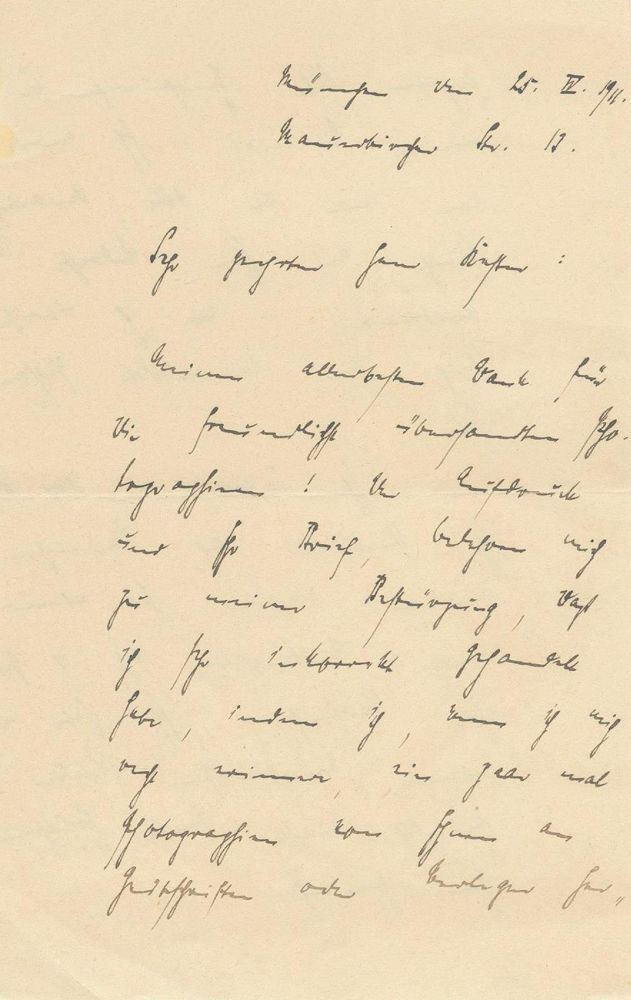 München den 25. IV. 1911.
Mauerkircher Str. 13.
Sehr geehrter Herr Kester:
Meinen allerbesten Dank für
die freundlichst übersandten Pho-
tographien! Ihr Aufdruck
und Ihr Brief, belehren mich
zu meiner Bestürzung, dass
ich sehr inkorrekt gehandelt
habe, indem ich, wenn ich mich
recht erinnere, ein paar mal
Photographien von Ihnen an
Zeitschriften oder Verleger her„